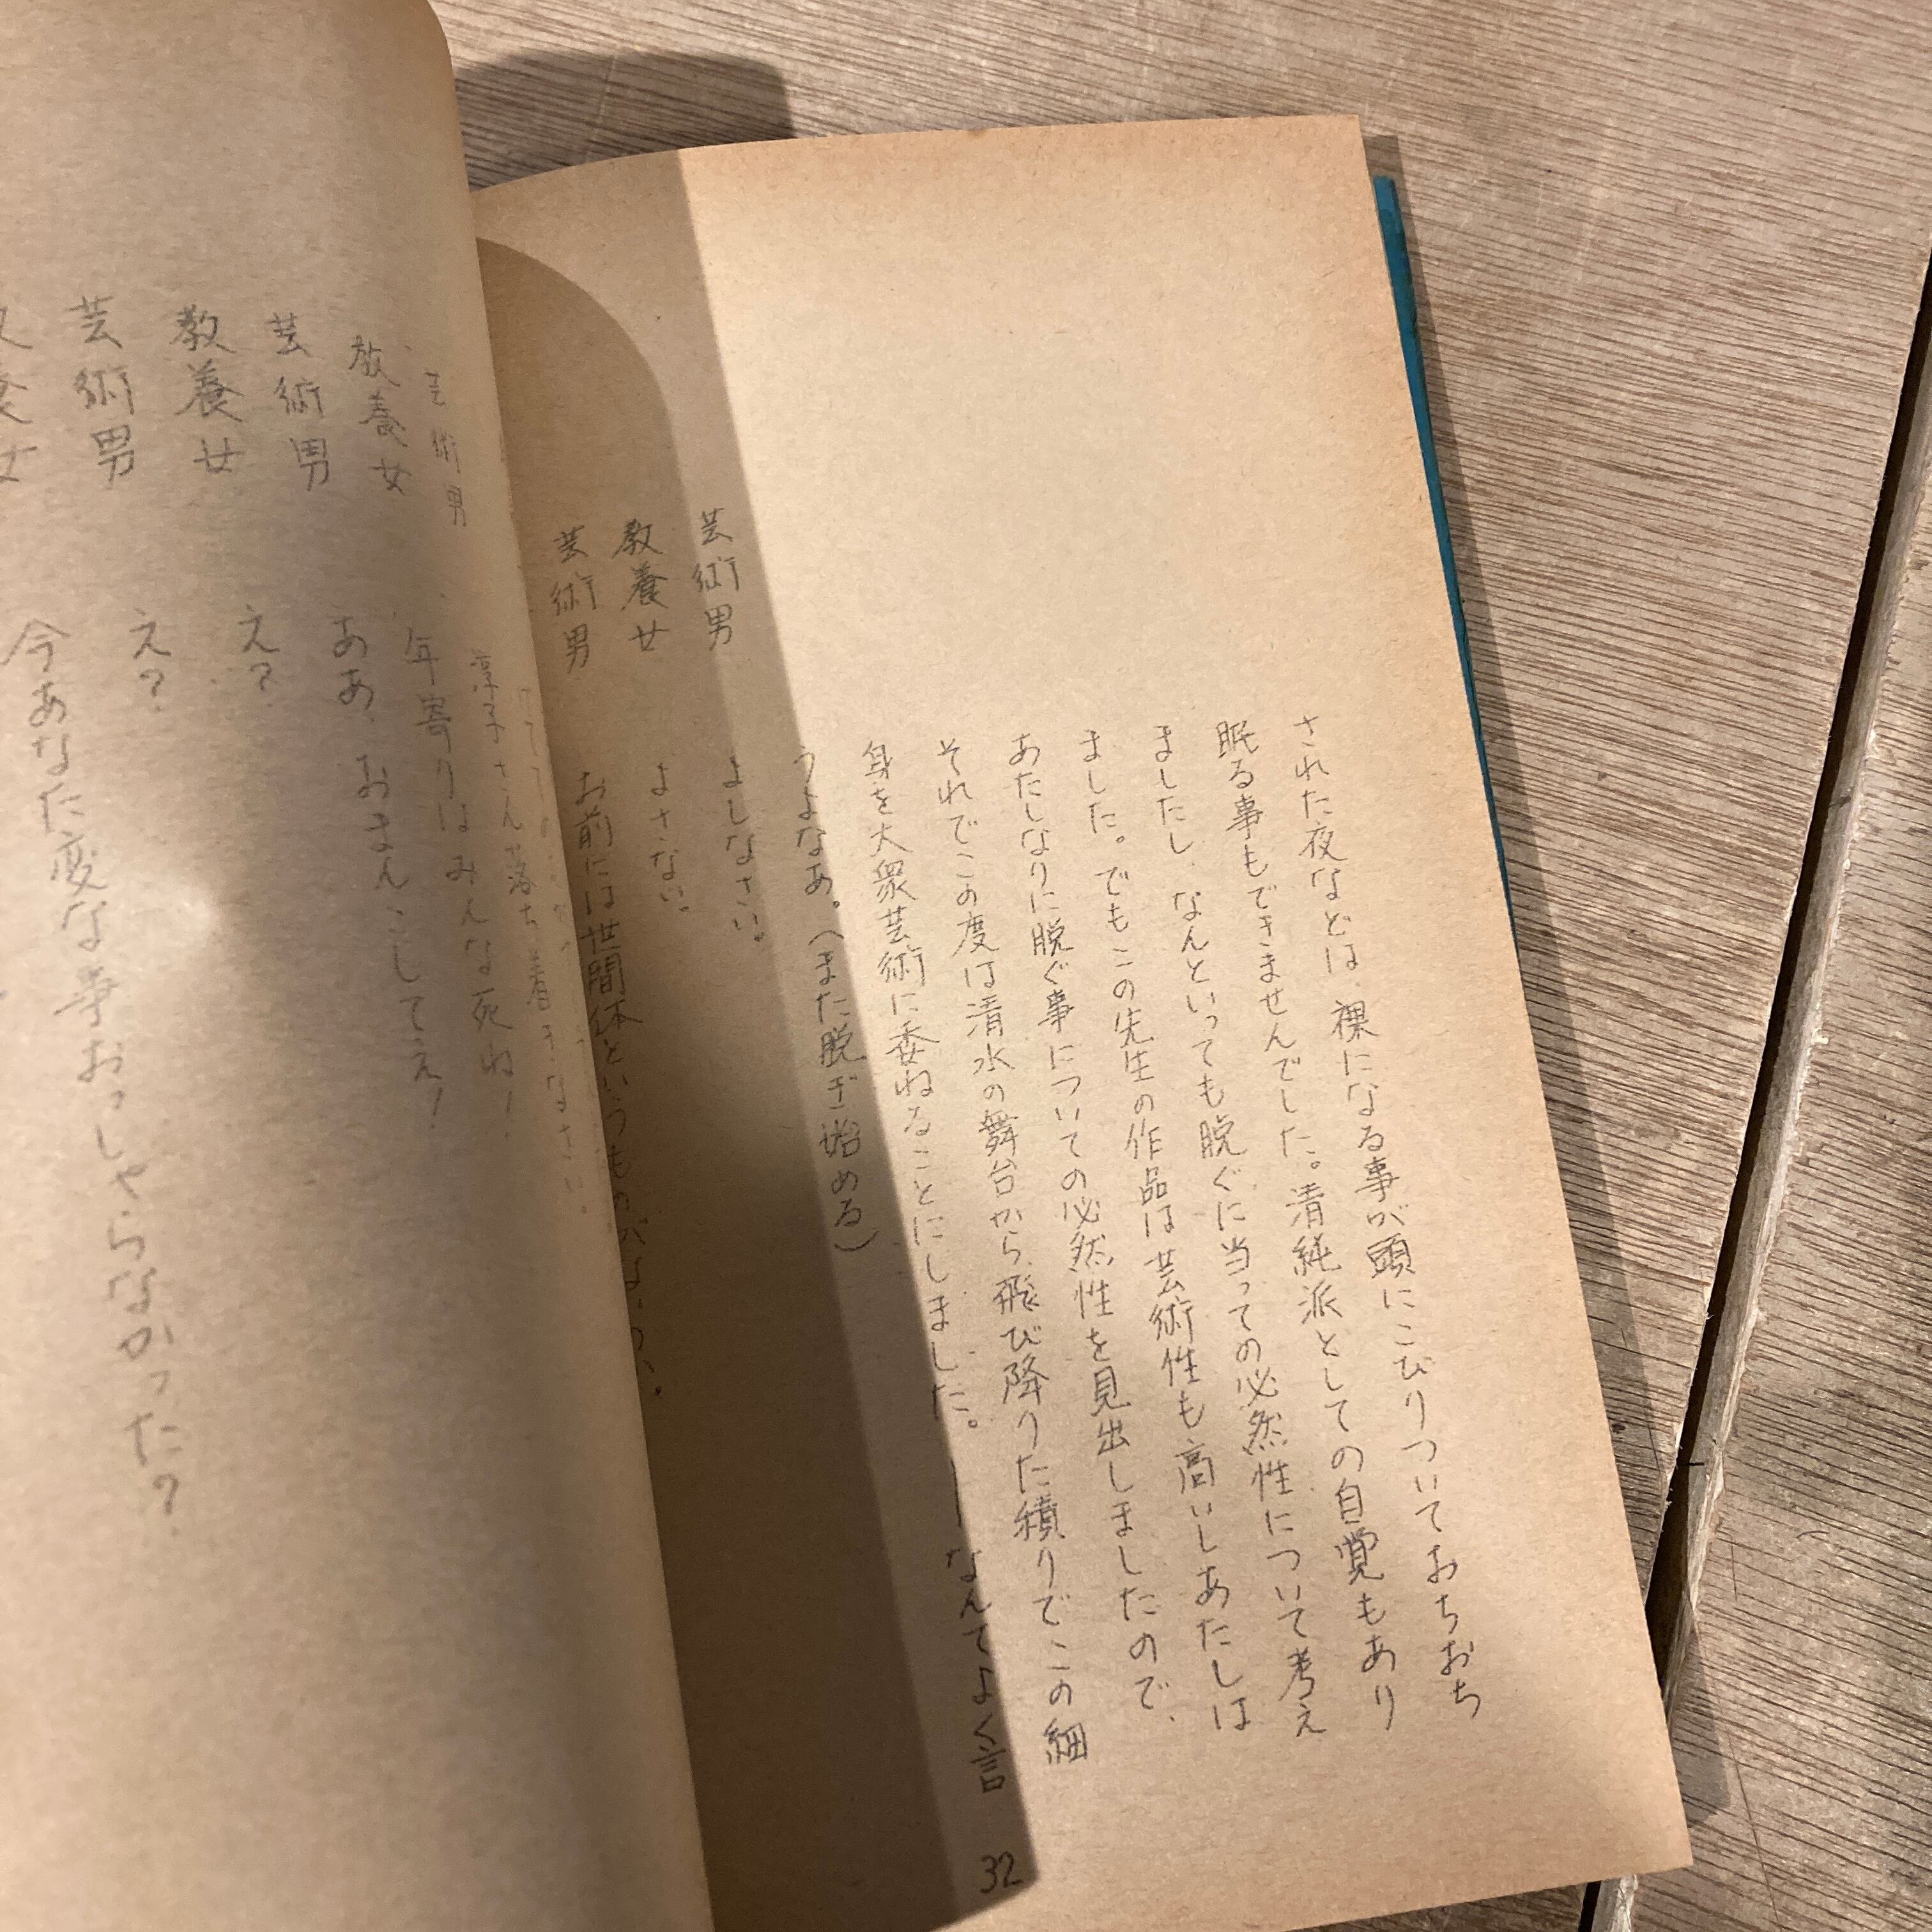 された夜などは、裸になる事が頭にこびりついておちおち
眠る事もできませんでした。清純派としての自覚もあり
ましたし、なんといっても脱ぐに当っての必然性について考え
ました。でもこの先生の作品は芸術性も高いしあたしは
あたしなりに脱ぐ事についての必然性を見出しましたので、
それでこの度は清水の舞台から飛び降りた積りでこの細
身を大衆芸術に委ねることにしました。――なんてよく言
うよなあ。(また脱ぎ始める)
芸術男 よしなさい。
教養女 よさない。
芸術男 お前には世間体というものがないのか。
32
淳子さん落ち着きなさい。
芸術男 年寄りはみんな死ね!
教養女 ああ、おまんこしてえ!
芸術男 え?
教養女 え?
芸術男 今あなた変な事おっしゃらなかった?